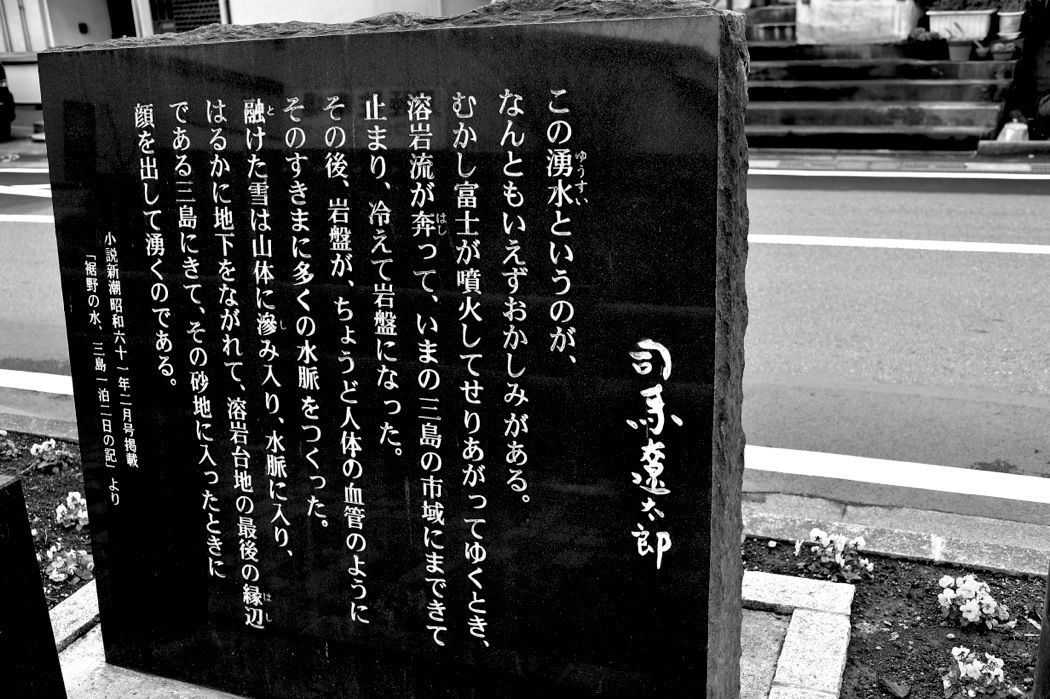 司馬遼太郎
この湧水というのが、
なんともいえずおかしみがある。
むかし富士が噴火してせりあがってゆくとき、
溶岩流が奔って、いまの三島の市域にまできて
止まり、冷えて岩盤になった。
その後、岩盤が、ちょうど人体の血管のように
そのすきまに多くの水脈をつくった。
融けた雪は山体に滲み入り、水脈に入り、
はるかに地下をながれて、溶岩台地の最後の縁辺
である三島にきて、その砂地に入ったときに
顔を出して湧くのである。
小説新潮昭和六十一年二月号掲載
「裾野の水、三島一泊二日の記」より
ゆうすい
はし
と
し
はし